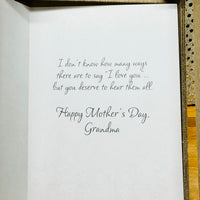 I don't know how many ways
there are to say "I love you"...
but you deserve to hear them all.
Happy Mother's Day,
Grandma